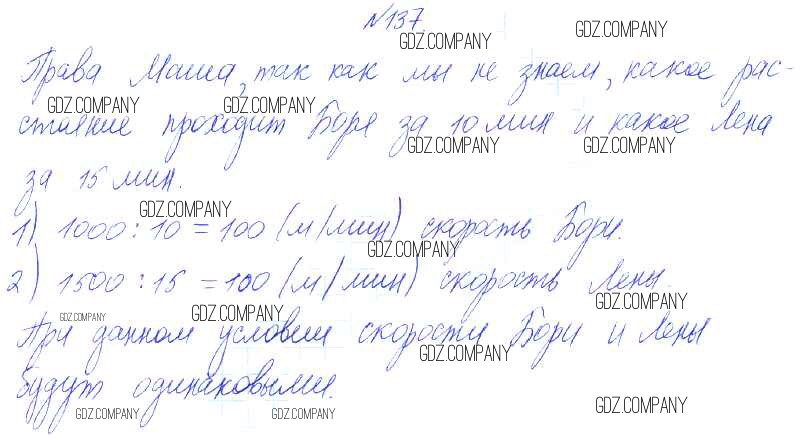 №137.
GDZ.COMPANY GDZ.COMPANY
Права Маша, так как мы не знаем, какое рас-
GDZ.COMPANY GDZ.COMPANY
стояние проходит Боря за 10 мин и какое Лена
GDZ.COMPANY GDZ.COMPANY
за 15 мин.
GDZ.COMPANY
1) 1000 : 10 = 100 (м/мин) скорость Бори.
GDZ.COMPANY
2) 1500 : 15 = 100 (м/мин) скорость Лены.
GDZ.COMPANY
GDZ.COMPANY GDZ.COMPANY
При данном условии скорости Бори и Лены
GDZ.COMPANY
будут одинаковыми.
GDZ.COMPANY GDZ.COMPANY GDZ.COMPANY